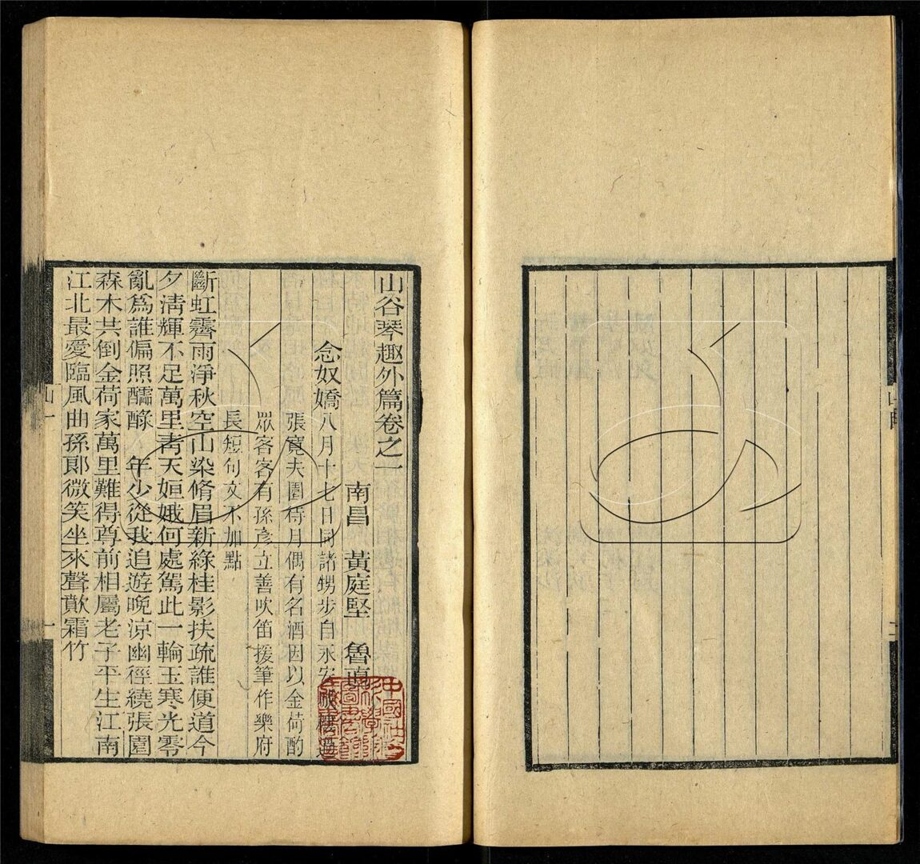 山谷琴趣外篇卷之一
南昌　黃庭堅　魯直
念奴嬌八月十七日同諸甥步自永安城樓過
張寬夫園待月偶有名酒因以金荷酌
眾客客有孫彥立善吹笛援筆作樂府
長短句文不加點
斷虹霽雨淨秋空山染脩眉新綠桂影扶疏誰便道今
夕淸輝不足萬里靑天姮娥何處駕此一輪玉寒光零
亂爲誰偏照醽醁　年少從我追遊晚涼幽徑繞張園
森木共倒金荷家萬里難得尊前相屬老子平生江南
江北最愛臨風曲孫郞微笑坐來聲歕霜竹
山一
一